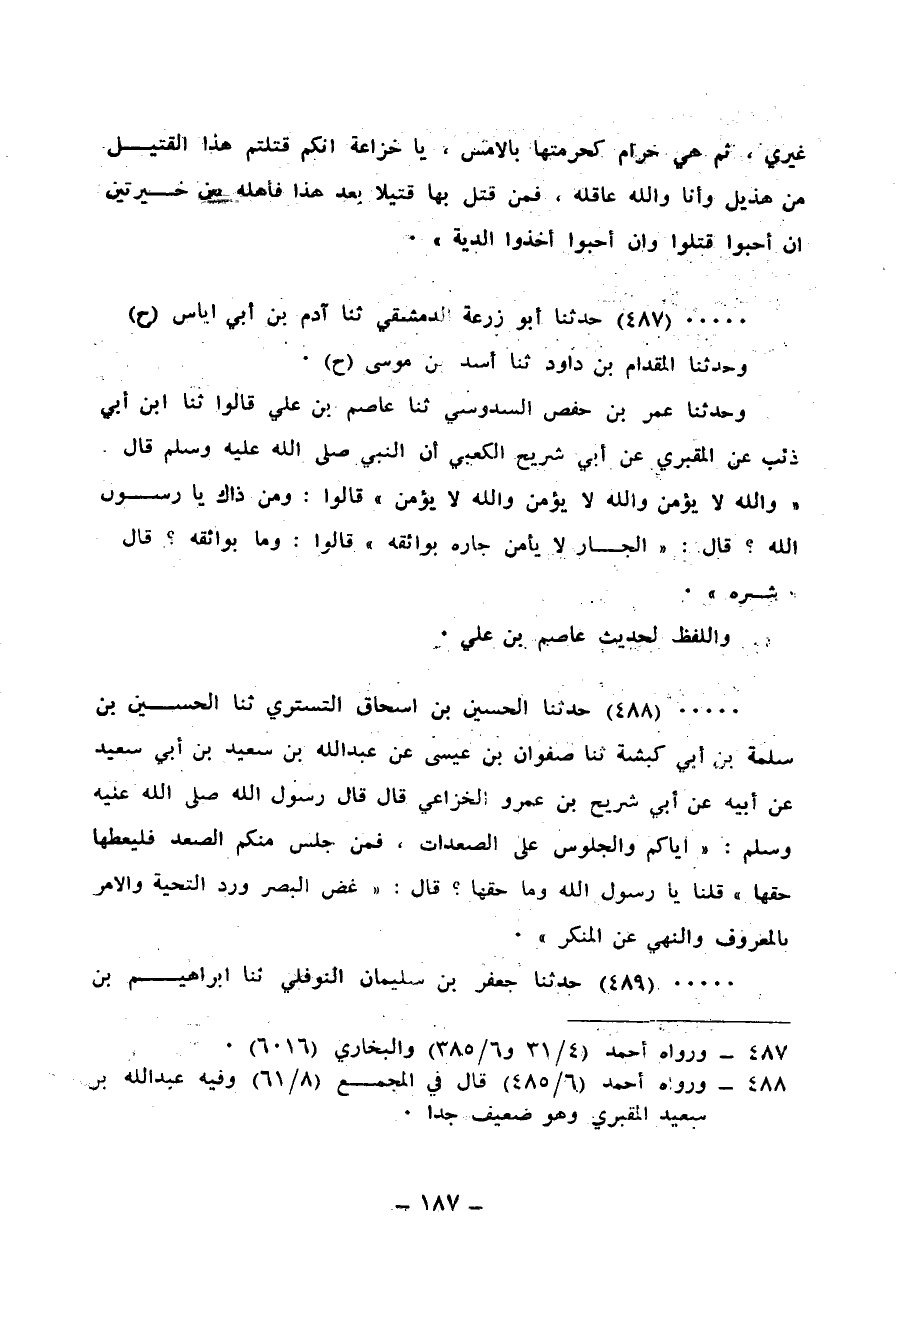 غيري ، ثم هي حرام كحرمتها بالامس ، يا خزاعة انكم قتلتم هذا القتيل
من هذيل وأنا والله عاقله ، فمن قتل بها قتيلا بعد هذا فأهله بين خيرتين
ان أحبوا قتلوا وان أحبوا أخذوا الدية » ٠
٠٠٠٠٠ (٤٨٧) حدثنا أبو زرعة الدمشقي ثنا آدم بن أبي اياس (ح)
وحدثنا المقدام بن داود ثنا أسد بن موسى (ح) ٠
وحدثنا عمر بن حفص السدوسي ثنا عاصم بن علي قالوا ثنا ابن أبي
ذئب عن المقبري عن أبي شريح الكعبي أن النبي صلى الله عليه وسلم قال
« والله لا يؤمن والله لا يؤمن والله لا يؤمن » قالوا : ومن ذاك يا رسول
الله ؟ قال : « الجار لا يأمن جاره بوائقه » قالوا : وما بوائقه ؟ قال
شره » ٠
واللفظ لحديث عاصم بن علي ٠
٠٠٠٠٠ (٤٨٨) حدثنا الحسين بن اسحاق التستري ثنا الحسين بن
سلمة بن أبي كبشة ثنا صفوان بن عيسى عن عبدالله بن سعيد بن أبي سعيد
عن أبيه عن أبي شريح بن عمرو الخزاعي قال قال رسول الله صلى الله عليه
وسلم : « اياكم والجلوس على الصعدات ، فمن جلس منكم الصعد فليعطها
حقها » قلنا يا رسول الله وما حقها ؟ قال : « غض البصر ورد التحية والامر
بالمعروف والنهي عن المنكر » ٠
٠٠٠٠٠ (٤٨٩) حدثنا جعفر بن سليمان النوفلي ثنا ابراهيم بن
٤٨٧ ــ ورواه أحمد (٣١/٤ و٣٨٥/٦) والبخاري (٦٠١٦) ٠
٤٨٨ ــ ورواه أحمد (٤٨٥/٦) قال في المجمع (٦١/٨) وفيه عبدالله بن
سعيد المقبري وهو ضعيف جدا ٠
ــ ١٨٧ ــ